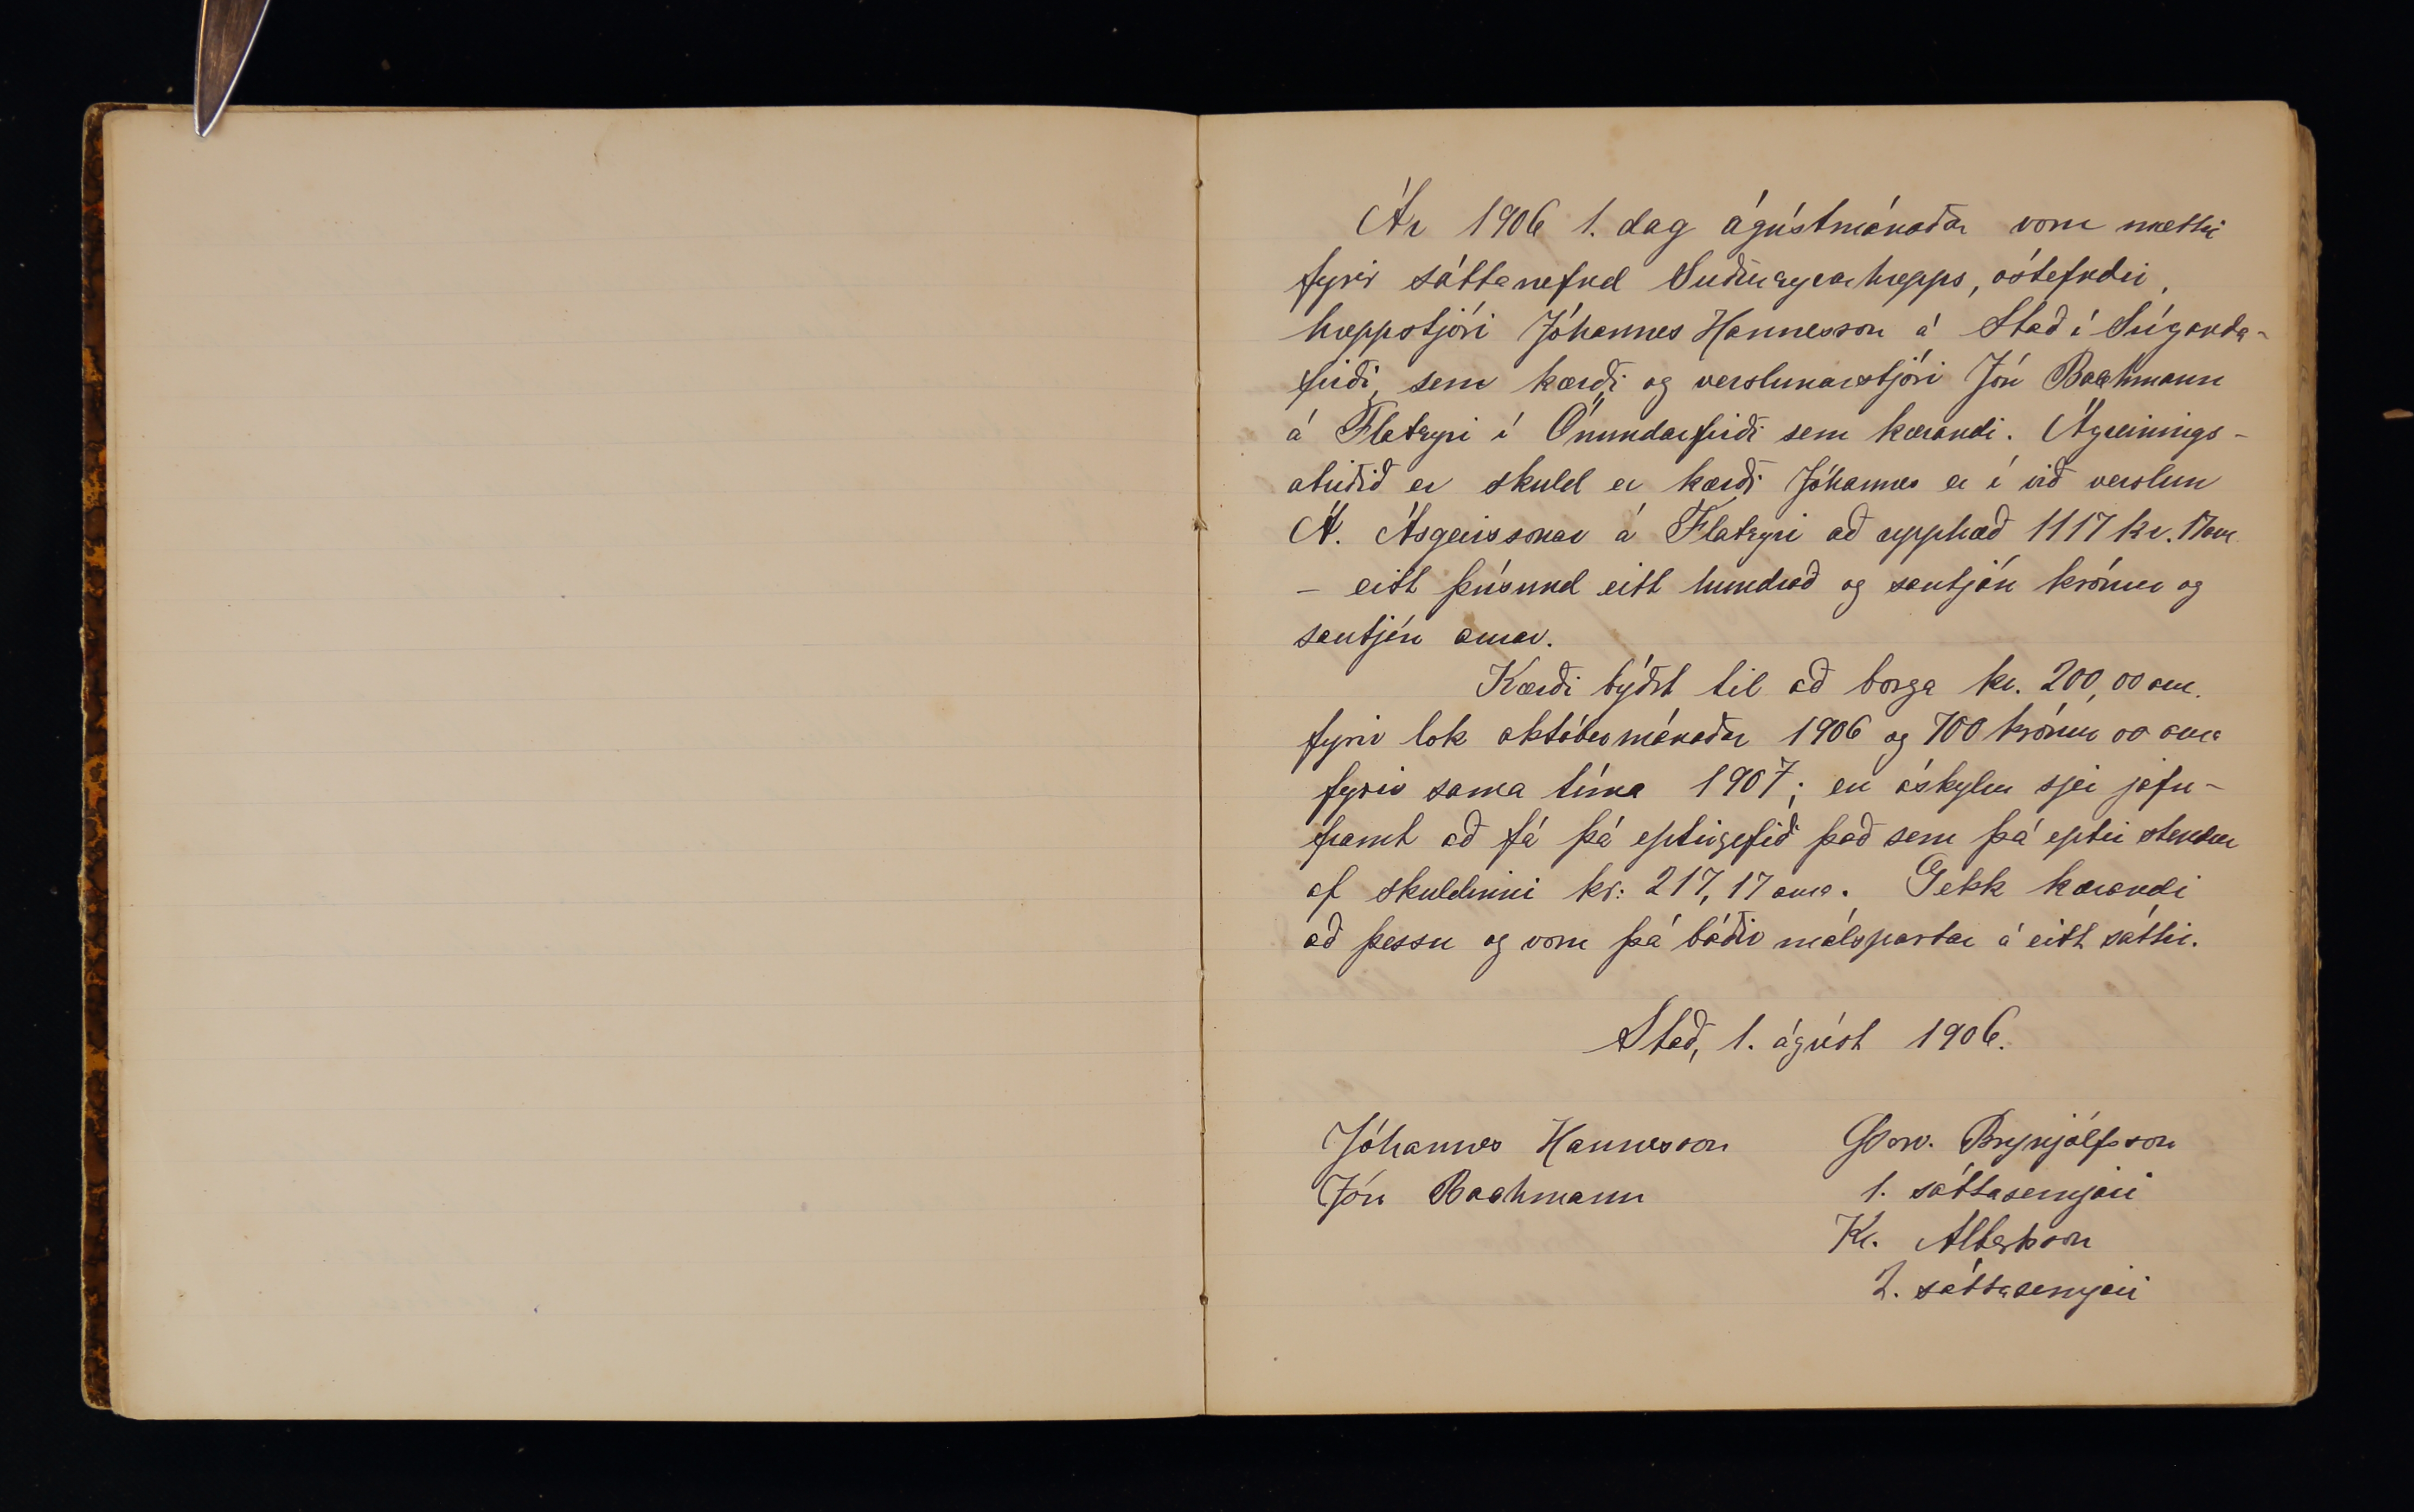 Ár 1906 1. dag ágústmánaðar voru mættir
fyrir sáttanefnd Suðureyrarhrepps, óstefndir,
hreppstjóri Jóhannes Hannesson á Stað í Súganda-
firði, sem kærði og verslunarstjóri Jón Bachmann
á Flateyri í Önundarfirði sem kærandi. Ágreinings-
atriðið er skuld er kærði Jóhannes er í við verslun
Á. Ásgeirssonar á Flateyri að upphæð 1117 kr. 17 aur.
- eitt þúsund eitt hundrað og sautján krónur og
sautján aurar.
Kærði býðst til að borga kr. 200,00 aur.
fyrir lok októbermánaðar 1906 og 700 krónur 00 aura
fyrir sama tíma 1907; en áskylur sjer jafn-
framt að fá þá eptirgefið það sem þá eptir stendur
af skuldinni kr: 217,17 aura. Gekk kærandi
að þessu og voru þá báðir málspartar á eitt sáttir.
Stað, 1. ágúst 1906.
Jóhannes Hannesson
Jón Bachmann
Þorv. Brynjólfsson
1. sáttasemjari
Kr. Albertsson
2. sáttasemjari